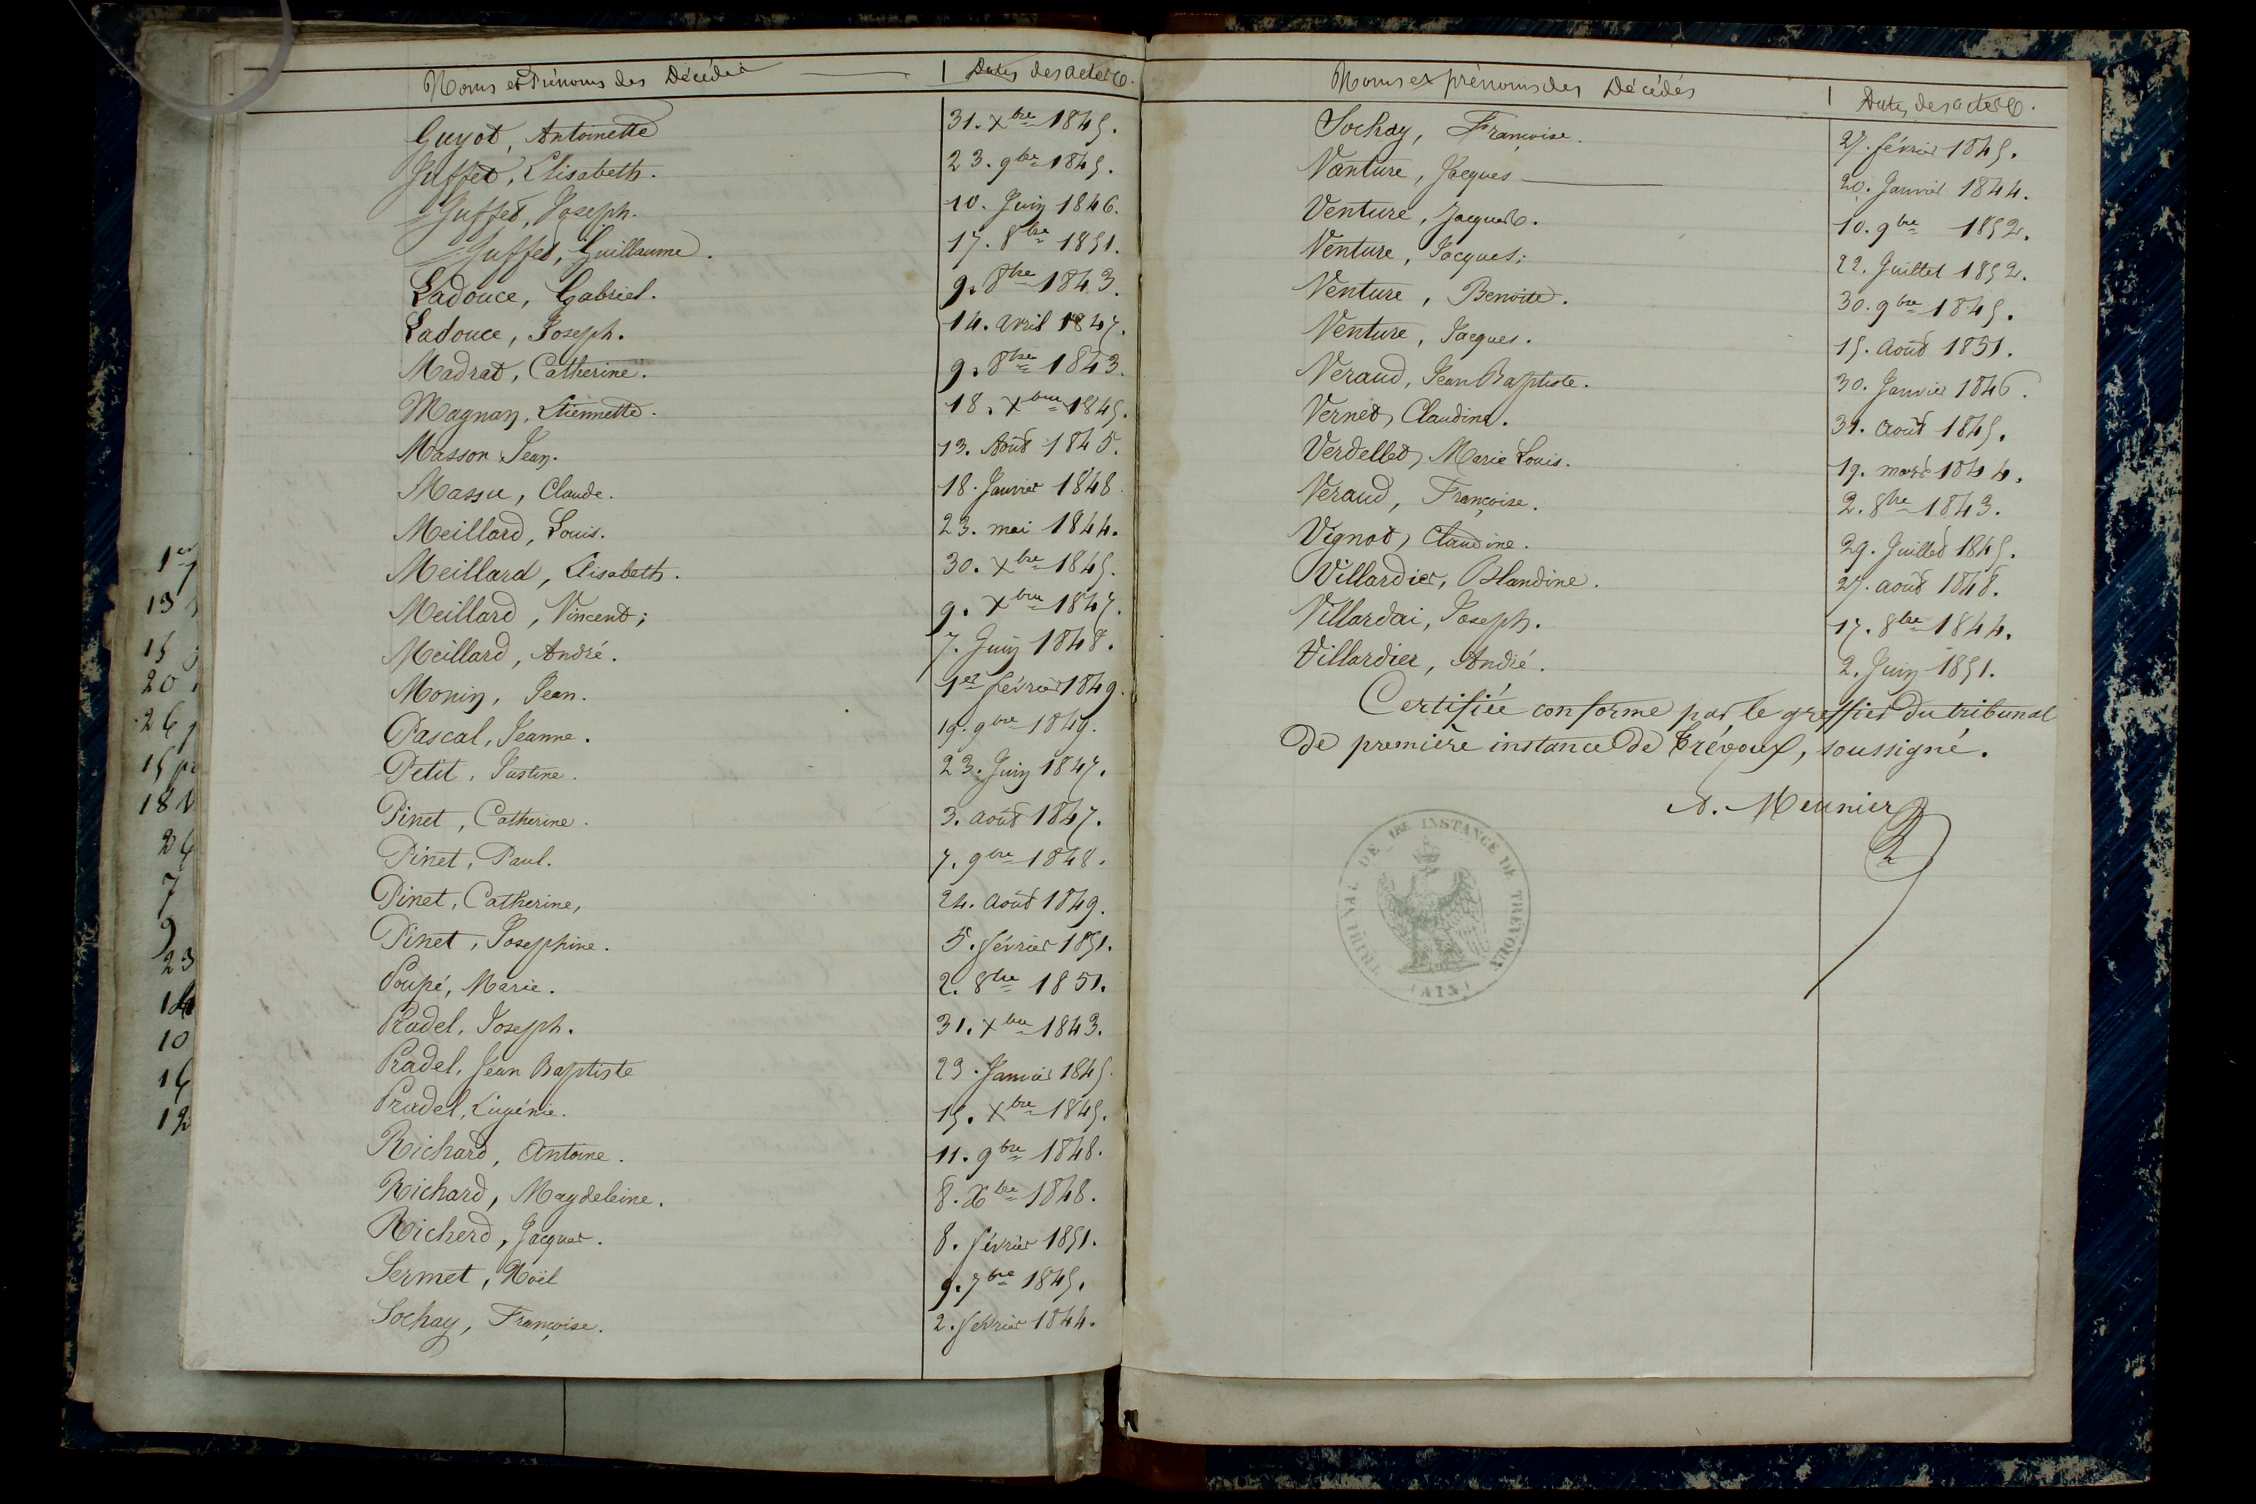 Noms et Prénoms des Décédés
Dates des actes.
Guyot, Antoinette
31. Xbre 1845.
Juffet, Elisabeth.
23. 9bre 1845.
Juffet, Joseph.
10. Juin 1846.
Juffet, Guillaume.
17. 8bre 1851.
Ladouce, Gabriel.
9. 8bre 1843.
Ladouce, Joseph.
14. avril 1847.
Madrat, Catherine.
9. 8bre 1843.
Magnan, Etiennette.
18. Xbre 1845.
Masson Jean.
13. Août 1845.
Massu, Claude.
18. Janvier 1848.
Meillard, Louis.
23. mai 1844.
Meillard, Elisabeth.
30. Xbre 1845.
Meillard, Vincent;
9. Xbre 1847.
Meillard, André.
7. Juin 1848.
Monin, Jean.
1er février 1849.
Pascal, Jeanne.
19. 9bre 1849.
Petit, Justine.
23. Juin 1847.
Pinet, Catherine.
3. août 1847.
Pinet, Paul.
7. 9bre 1848.
Pinet, Catherine,
24. août 1849.
Pinet, Josephine.
5. février 1851.
Poupé, Marie.
2. 8bre 1851.
Pradel, Joseph.
31. Xbre 1843.
Pradel, Jean Baptiste
23. Janvier 1845.
Pradel, Eugénie.
15. Xbre 1845.
Richard, Antoine.
11. 9bre 1848.
Richard, Magdeleine.
8. Xbre 1848.
Richerd, Jacques.
8. février 1851.
Sermet, Noël
9. 7bre 1845.
Sochay, Françoise.
2. février 1844.
Noms et prénoms des Décédés
Dates des actes.
Sochay, Françoise.
27. février 1845.
Vanture, Jacques
20. Janvier 1844.
Venture, Jacques.
10. 9bre 1852.
Venture, Jacques;
22. Juillet 1852.
Venture, Benoite.
30. 9bre 1845.
Venture, Jacques.
15. Août 1851.
Veraud, Jean Baptiste.
30. Janvier 1846.
Vernet, Claudine.
31. août 1845.
Verdellet, Marie Louis.
19. mars 1844.
Veraud, Françoise.
2. 8bre 1843.
Vignot, Claudine.
29. Juillet 1845.
Villardier, Blandine.
27. août 1848.
Villardai, Joseph.
17. 8bre 1844.
Villardier, André.
2. Juin 1851.
Certifiée conforme par le greffier du tribunal
de première instance de Trévoux, soussigné.
A. Meunier
TRIBUNAL DE 1RE INSTANCE DE TRÉVOUX
(AIN)
1er
13
15
20
26
15
18
26
7
9
23
14
10
16
12